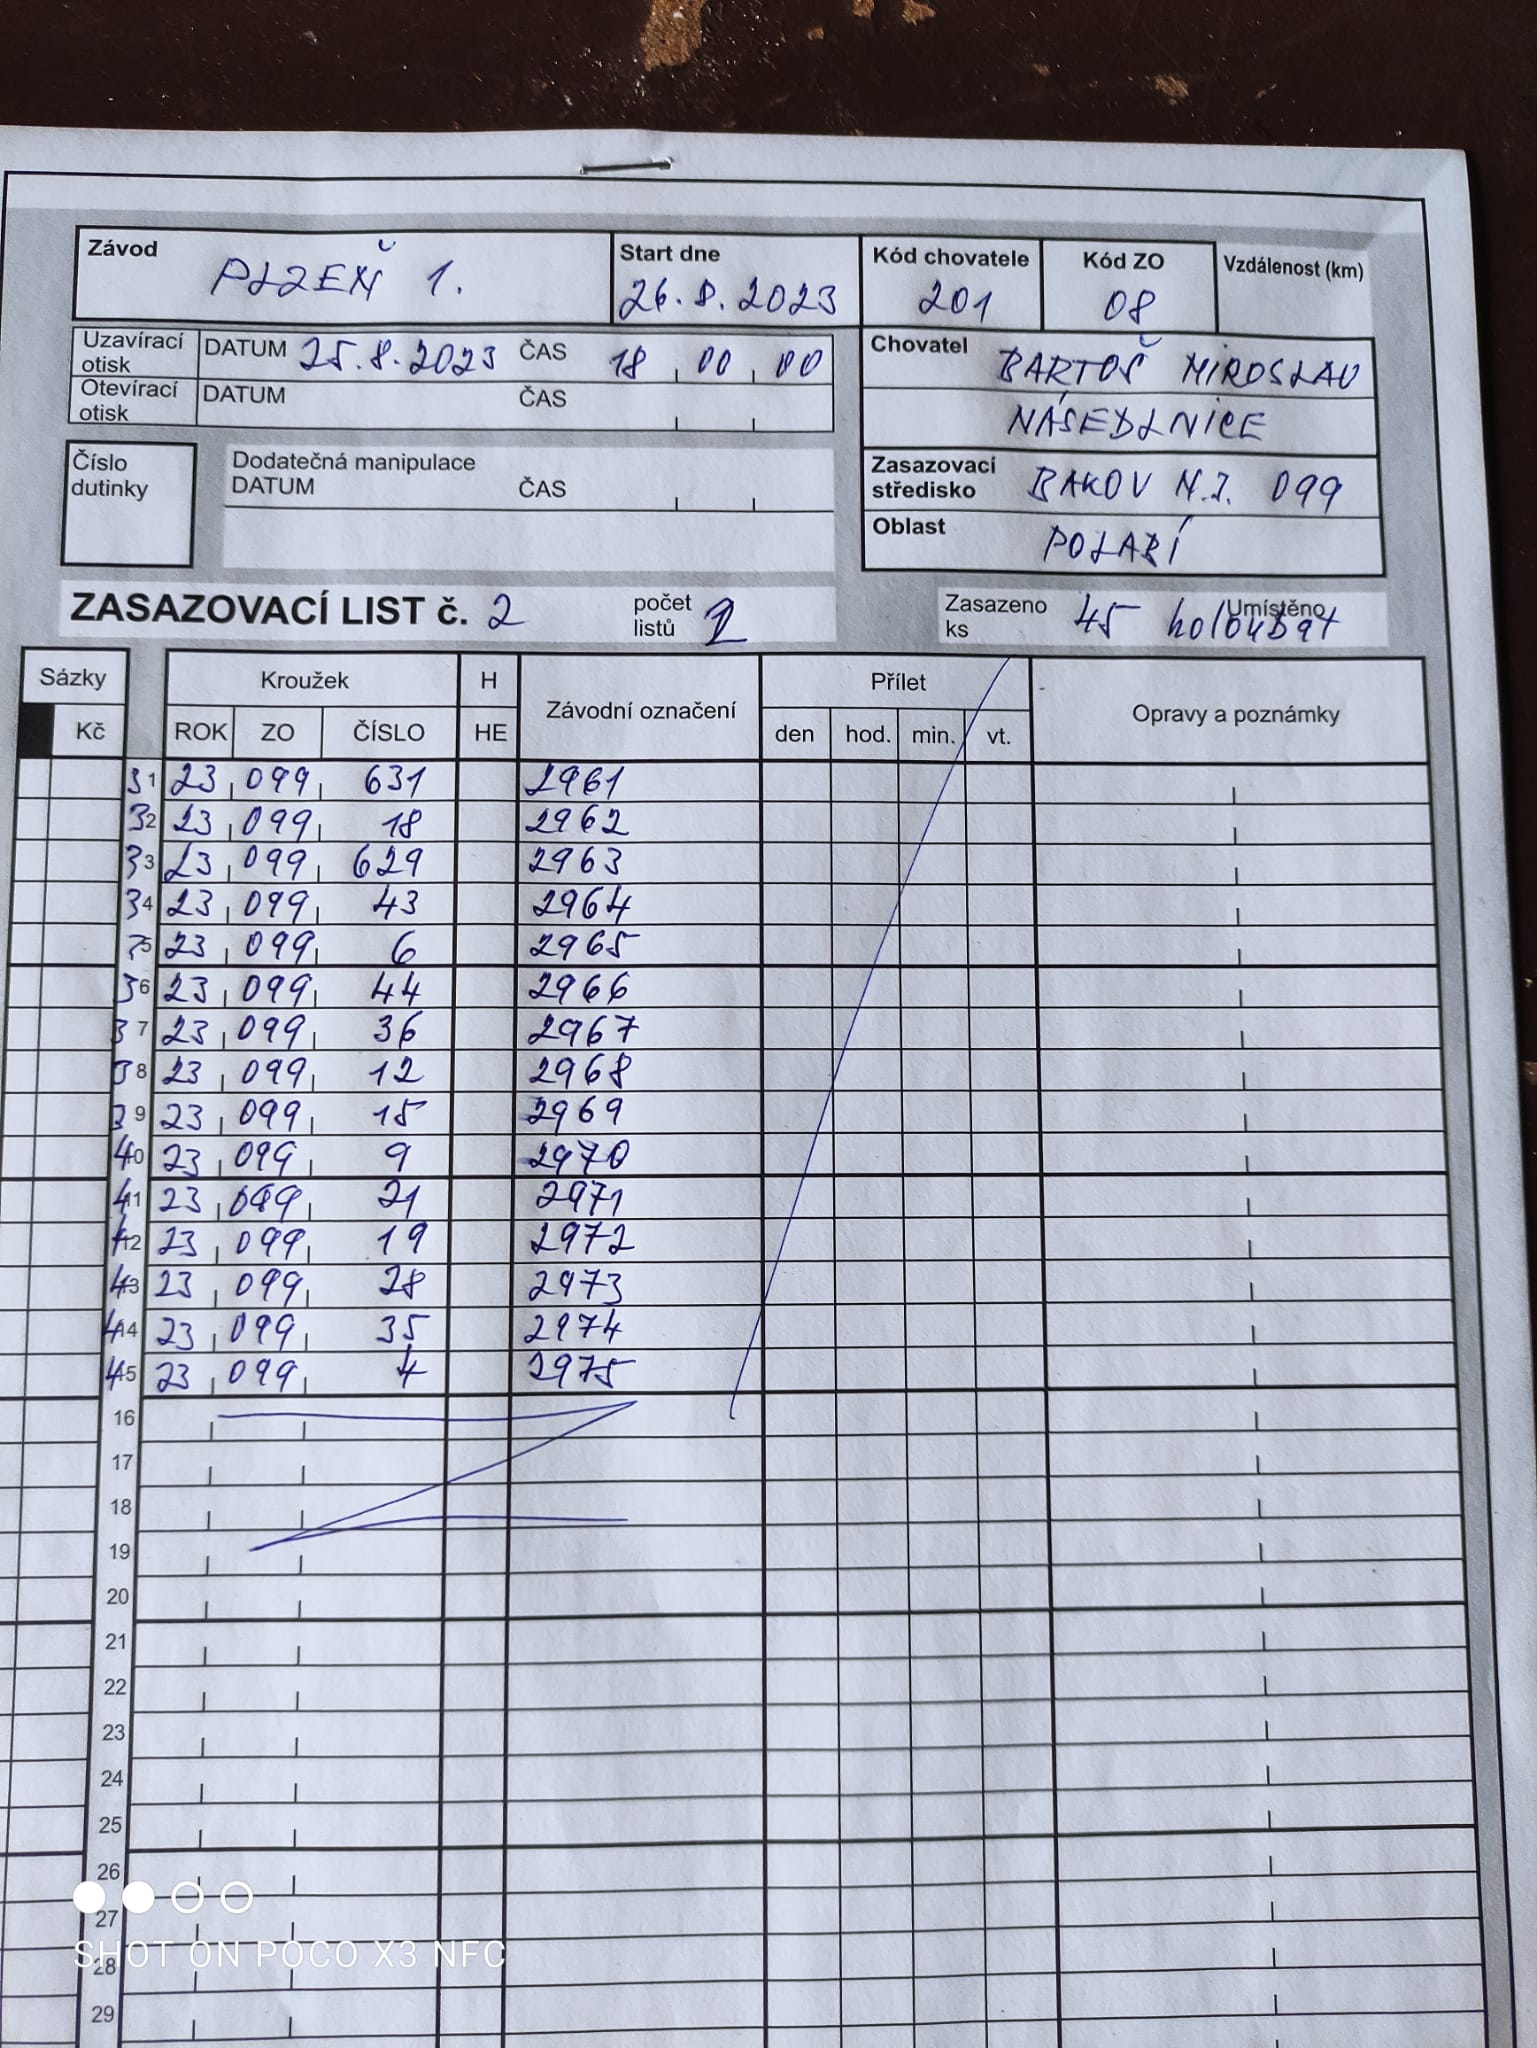 Závod PLZEŇ 1.
Start dne 26.8.2023
Kód chovatele 201
Kód ZO 08
Vzdálenost (km)
Uzavírací otisk DATUM 25.8.2023 ČAS 18 00 00
Otevírací otisk DATUM ČAS
Chovatel BARTOŠ MIROSLAV
NÁSEDLNICE
Číslo dutinky
Dodatečná manipulace
DATUM ČAS
Zasazovací středisko BAKOV N.J. 099
Oblast POLABÍ
ZASAZOVACÍ LIST č. 2 počet listů 2 Zasazeno ks 45 holoubat Umístěno
Sázky Kroužek H Závodní označení Přílet Opravy a poznámky
Kč ROK ZO ČÍSLO HE den hod. min. vt.
31 23 099 631 2961
32 23 099 18 2962
33 23 099 629 2963
34 23 099 43 2964
35 23 099 6 2965
36 23 099 44 2966
37 23 099 36 2967
38 23 099 12 2968
39 23 099 15 2969
40 23 099 9 2970
41 23 099 21 2971
42 23 099 19 2972
43 23 099 28 2973
44 23 099 35 2974
45 23 099 4 2975
16
17
18
19
20
21
22
23
24
25
26
27
SHOT ON POCO X3 NFC
28
29